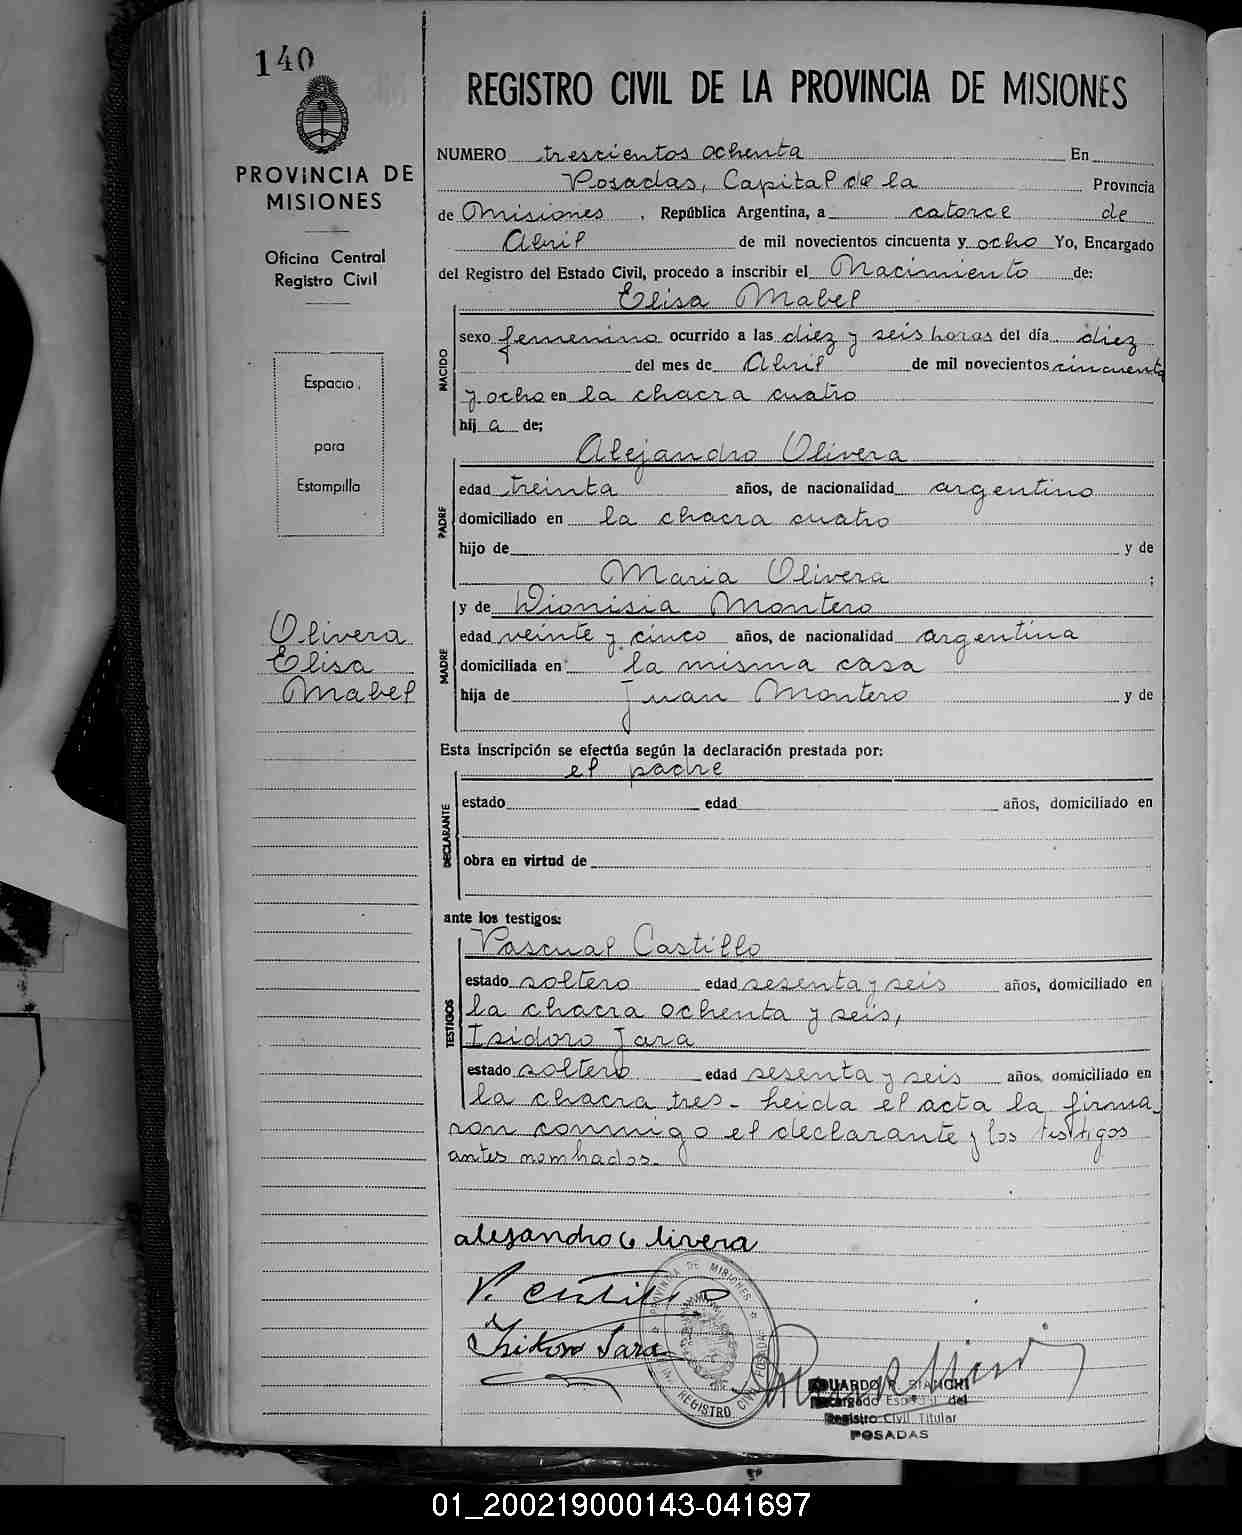 140
PROVINCIA DE
MISIONES
Oficina Central
Registro Civil
Espacio
para
Estampilla
Olivera
Elisa
Mabel
REGISTRO CIVIL DE LA PROVINCIA DE MISIONES
NUMERO trescientos ochenta En
Posadas, Capital de la Provincia
de Misiones, República Argentina, a catorce de
Abril de mil novecientos cincuenta y ocho Yo, Encargado
del Registro del Estado Civil, procedo a inscribir el Nacimiento de:
Elisa Mabel
NACIDO
sexo femenino ocurrido a las diez y seis horas del día diez
del mes de Abril de mil novecientos cincuenta
y ocho en la chacra cuatro
hij a de;
Alejandro Olivera
PADRE
edad treinta años, de nacionalidad argentino
domiciliado en la chacra cuatro
hijo de y de
Maria Olivera ;
y de Dionisia Montero
MADRE
edad veinte y cinco años, de nacionalidad argentina
domiciliada en la misma casa
hija de Juan Montero y de
Esta inscripción se efectúa según la declaración prestada por:
el padre
DECLARANTE
estado edad años, domiciliado en
obra en virtud de
ante los testigos:
Pascual Castillo
TESTIGOS
estado soltero edad sesenta y seis años, domiciliado en
la chacra ochenta y seis,
Isidoro Jara
estado soltero edad sesenta y seis años, domiciliado en
la chacra tres - Leida el acta la firma-
ron conmigo el declarante y los testigos
antes nombrados.-
alejandro Olivera
P. Castillo
Isidoro Jara
PROVINCIA DE MISIONES
REGISTRO CIVIL
EDUARDO R. BIANCHI
Encargado del
Registro Civil Titular
POSADAS
01_200219000143-041697